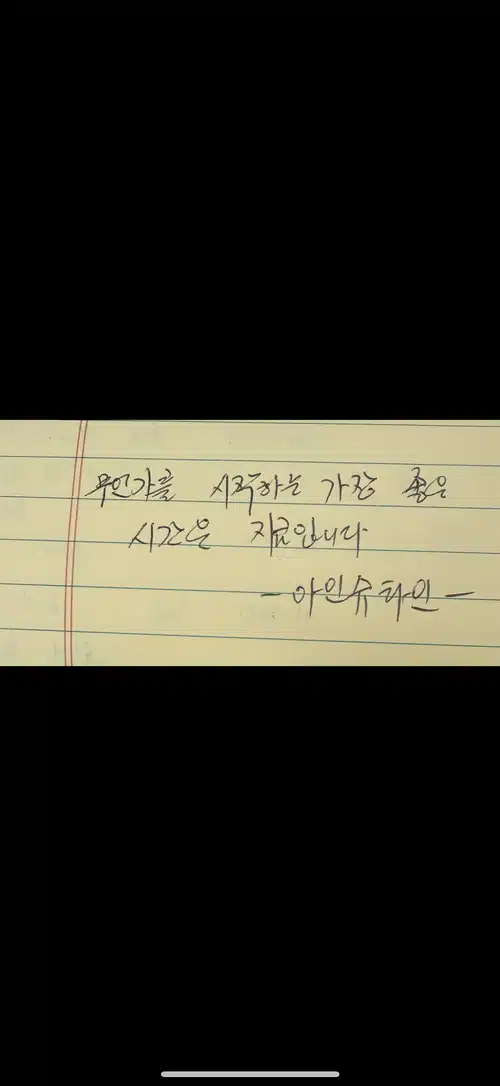 무언가를 시작하는 가장 좋은
시간은 지금입니다
-아인슈타인-